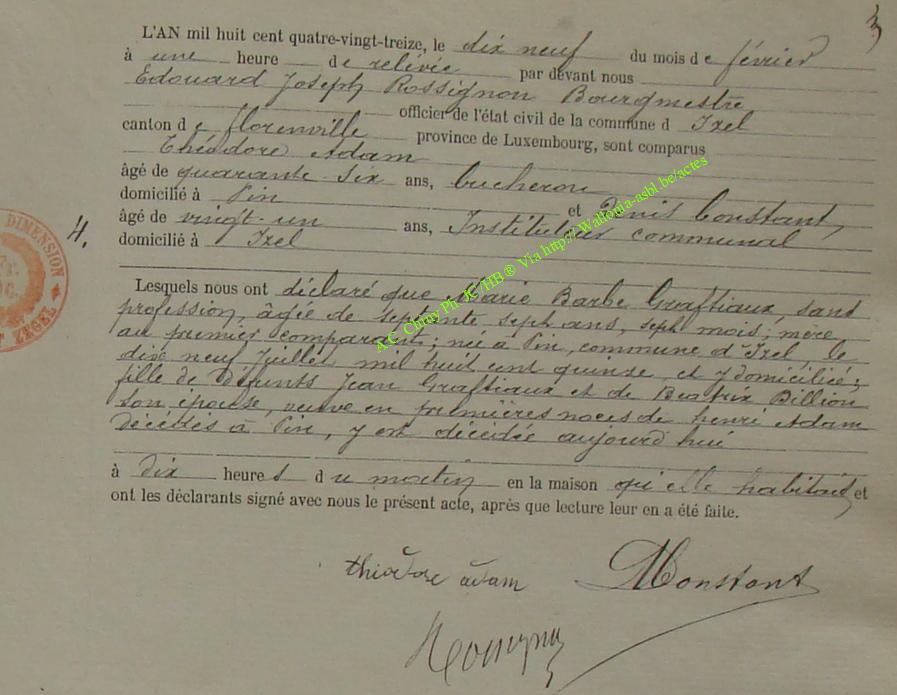 3
L'AN mil huit cent quatre-vingt-treize, le dix neuf du mois de février
à une heure de relévée par devant nous
Edouard Joseph Rossignon Bourgmestre
officier de l'état civil de la commune d Izel
canton de florenville province de Luxembourg, sont comparus
Théodore Adam
âgé de quarante six ans, bucheron
domicilié à Pin et Denis Constant,
4.
âgé de vingt-un ans, Instituteur communal
domicilié à Izel
Lesquels nous ont déclaré que Marie Barbe Graftiaux, sans
profession, âgée de septante sept ans, sept mois; mère
au premier comparant; née à Pin, commune d'Izel le
dixe neuf Juillet mil huit cent quinze et y domiciliée;
fille de défunts Jean Graftiaux et de Beatrix Billion
son épouse, veuve en premières noces de henri Adam
décédés à Pin, y est décédée aujourd'hui
à dix heures du matin en la maison qu'elle habitait et
ont les déclarants signé avec nous le présent acte, après que lecture leur en a été faite.
théodore adam
DConstant
DIMENSION
A.C. Chiny Ph.JC/HB® Via http://Wallonia-asbl.be/actes